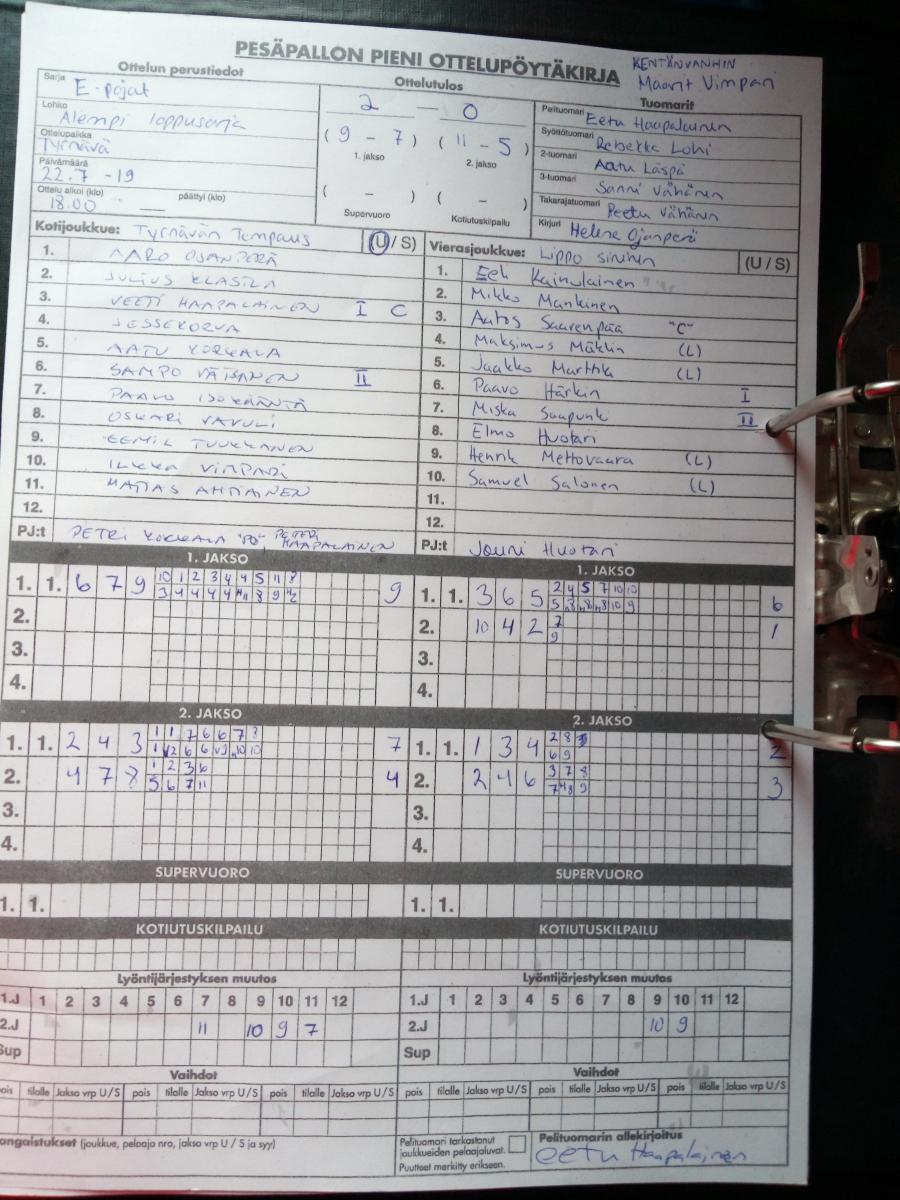 PESÄPALLON PIENI OTTELUPÖYTÄKIRJA
KENTÄNVANHIN
Maarit Vimpari
Ottelun perustiedot
Sarja E-pojat
Lohko Alempi loppusarja
Ottelupaikka Tyrnävä
Päivämäärä 22.7 -19
Ottelu alkoi (klo) päättyi (klo)
18.00
Ottelutulos
2 — 0
( 9 - 7 ) ( 11 - 5 )
1. jakso 2. jakso
( - ) ( - )
Supervuoro Kotiutuskilpailu
Tuomarit
Pelituomari Eetu Haapalainen
Syöttötuomari Rebekka Lohi
2-tuomari Aatu Läspä
3-tuomari Sanni Vähänen
Takarajatuomari Peetu Vähänen
Kirjuri Helena Ojanperä
Kotijoukkue: Tyrnävän Tempaus (U / S)
1. AARO OJANPERÄ
2. JULIUS KLASILA
3. VEETI HAAPALAINEN I C
4. JESSE KORVA
5. AATU KORKALA
6. SAMPO VÄISÄNEN II
7. PAAVO ISOKÄÄNTÄ
8. OSKARI VAVULI
9. EEMIL TUUKKANEN
10. ILKKA VIMPARI
11. MATIAS AHTIAINEN
12.
PJ:t PETRI KORKALA "PO", PETERI HAAPALAINEN
Vierasjoukkue: Lippo sininen (U / S)
1. Eeli Kainulainen
2. Mikko Mankinen
3. Aatos Saarenpää "C"
4. Maksimus Mäklin (L)
5. Jaakko Marttila (L)
6. Paavo Härkin I
7. Miska Saapunki II
8. Elmo Huotari
9. Henrik Mettovaara (L)
10. Samuel Salonen (L)
11.
12.
PJ:t Jouni Huotari
1. JAKSO
1. 1. 6 7 9 10 1 2 3 4 4 5 11 8 9
2.
3.
4.
1. JAKSO
1. 1. 3 6 5 2 4 5 7 10 10 6
2. 10 4 2 7 1
9
3.
4.
2. JAKSO
1. 1. 2 4 3 1 1 7 6 6 7 8 7
2. 4 7 8 1 2 3 6 4
5 6 7 11
3.
4.
2. JAKSO
1. 1. 1 3 4 2 8 2
6 9
2. 2 4 6 3 7 8 3
3.
4.
SUPERVUORO
1. 1.
SUPERVUORO
1. 1.
KOTIUTUSKILPAILU
KOTIUTUSKILPAILU
Lyöntijärjestyksen muutos
1.J 1 2 3 4 5 6 7 8 9 10 11 12
2.J 11 10 9 7
Sup
Lyöntijärjestyksen muutos
1.J 1 2 3 4 5 6 7 8 9 10 11 12
2.J 10 9
Sup
Vaihdot
pois tilalle Jakso vrp U/S pois tilalle Jakso vrp U/S pois tilalle Jakso vrp U/S
Vaihdot
pois tilalle Jakso vrp U/S pois tilalle Jakso vrp U/S pois tilalle Jakso vrp U/S
angaistukset (joukkue, pelaaja nro, jakso vrp U / S ja syy)
Pelituomari tarkastanut
joukkueiden pelaajaluvat.
Puutteet merkitty erikseen.
Pelituomarin allekirjoitus
eetu Haapalainen